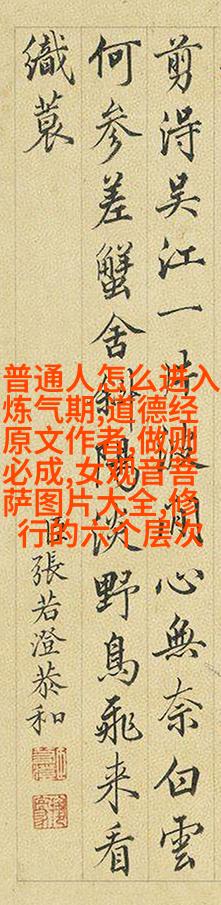 剪淂吴江一片波閒心無奈白雲
何参差蟹舍斜陽淡野鳥飛来看
織蓑
臣張若澄恭和
普通人怎么进入
炼气期,道德经
原文作者,做则
必成,女观音菩
萨图片大全,修
行的六个层次